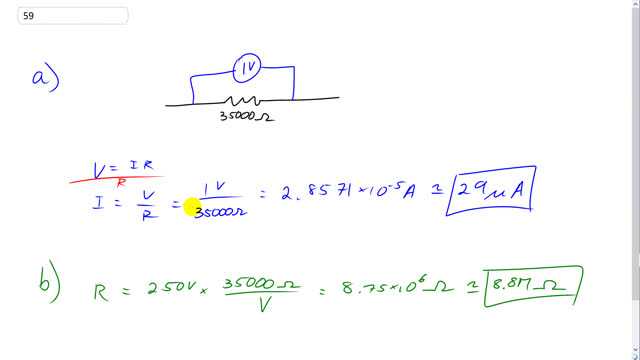 59
a)
1V
35000Ω
V = IR
R
I = V/R = 1V/35000Ω = 2.8571×10^-5 A ≃ 29μA
b) R = 250V × 35000Ω/V = 8.75×10^6 Ω ≃ 8.8M Ω